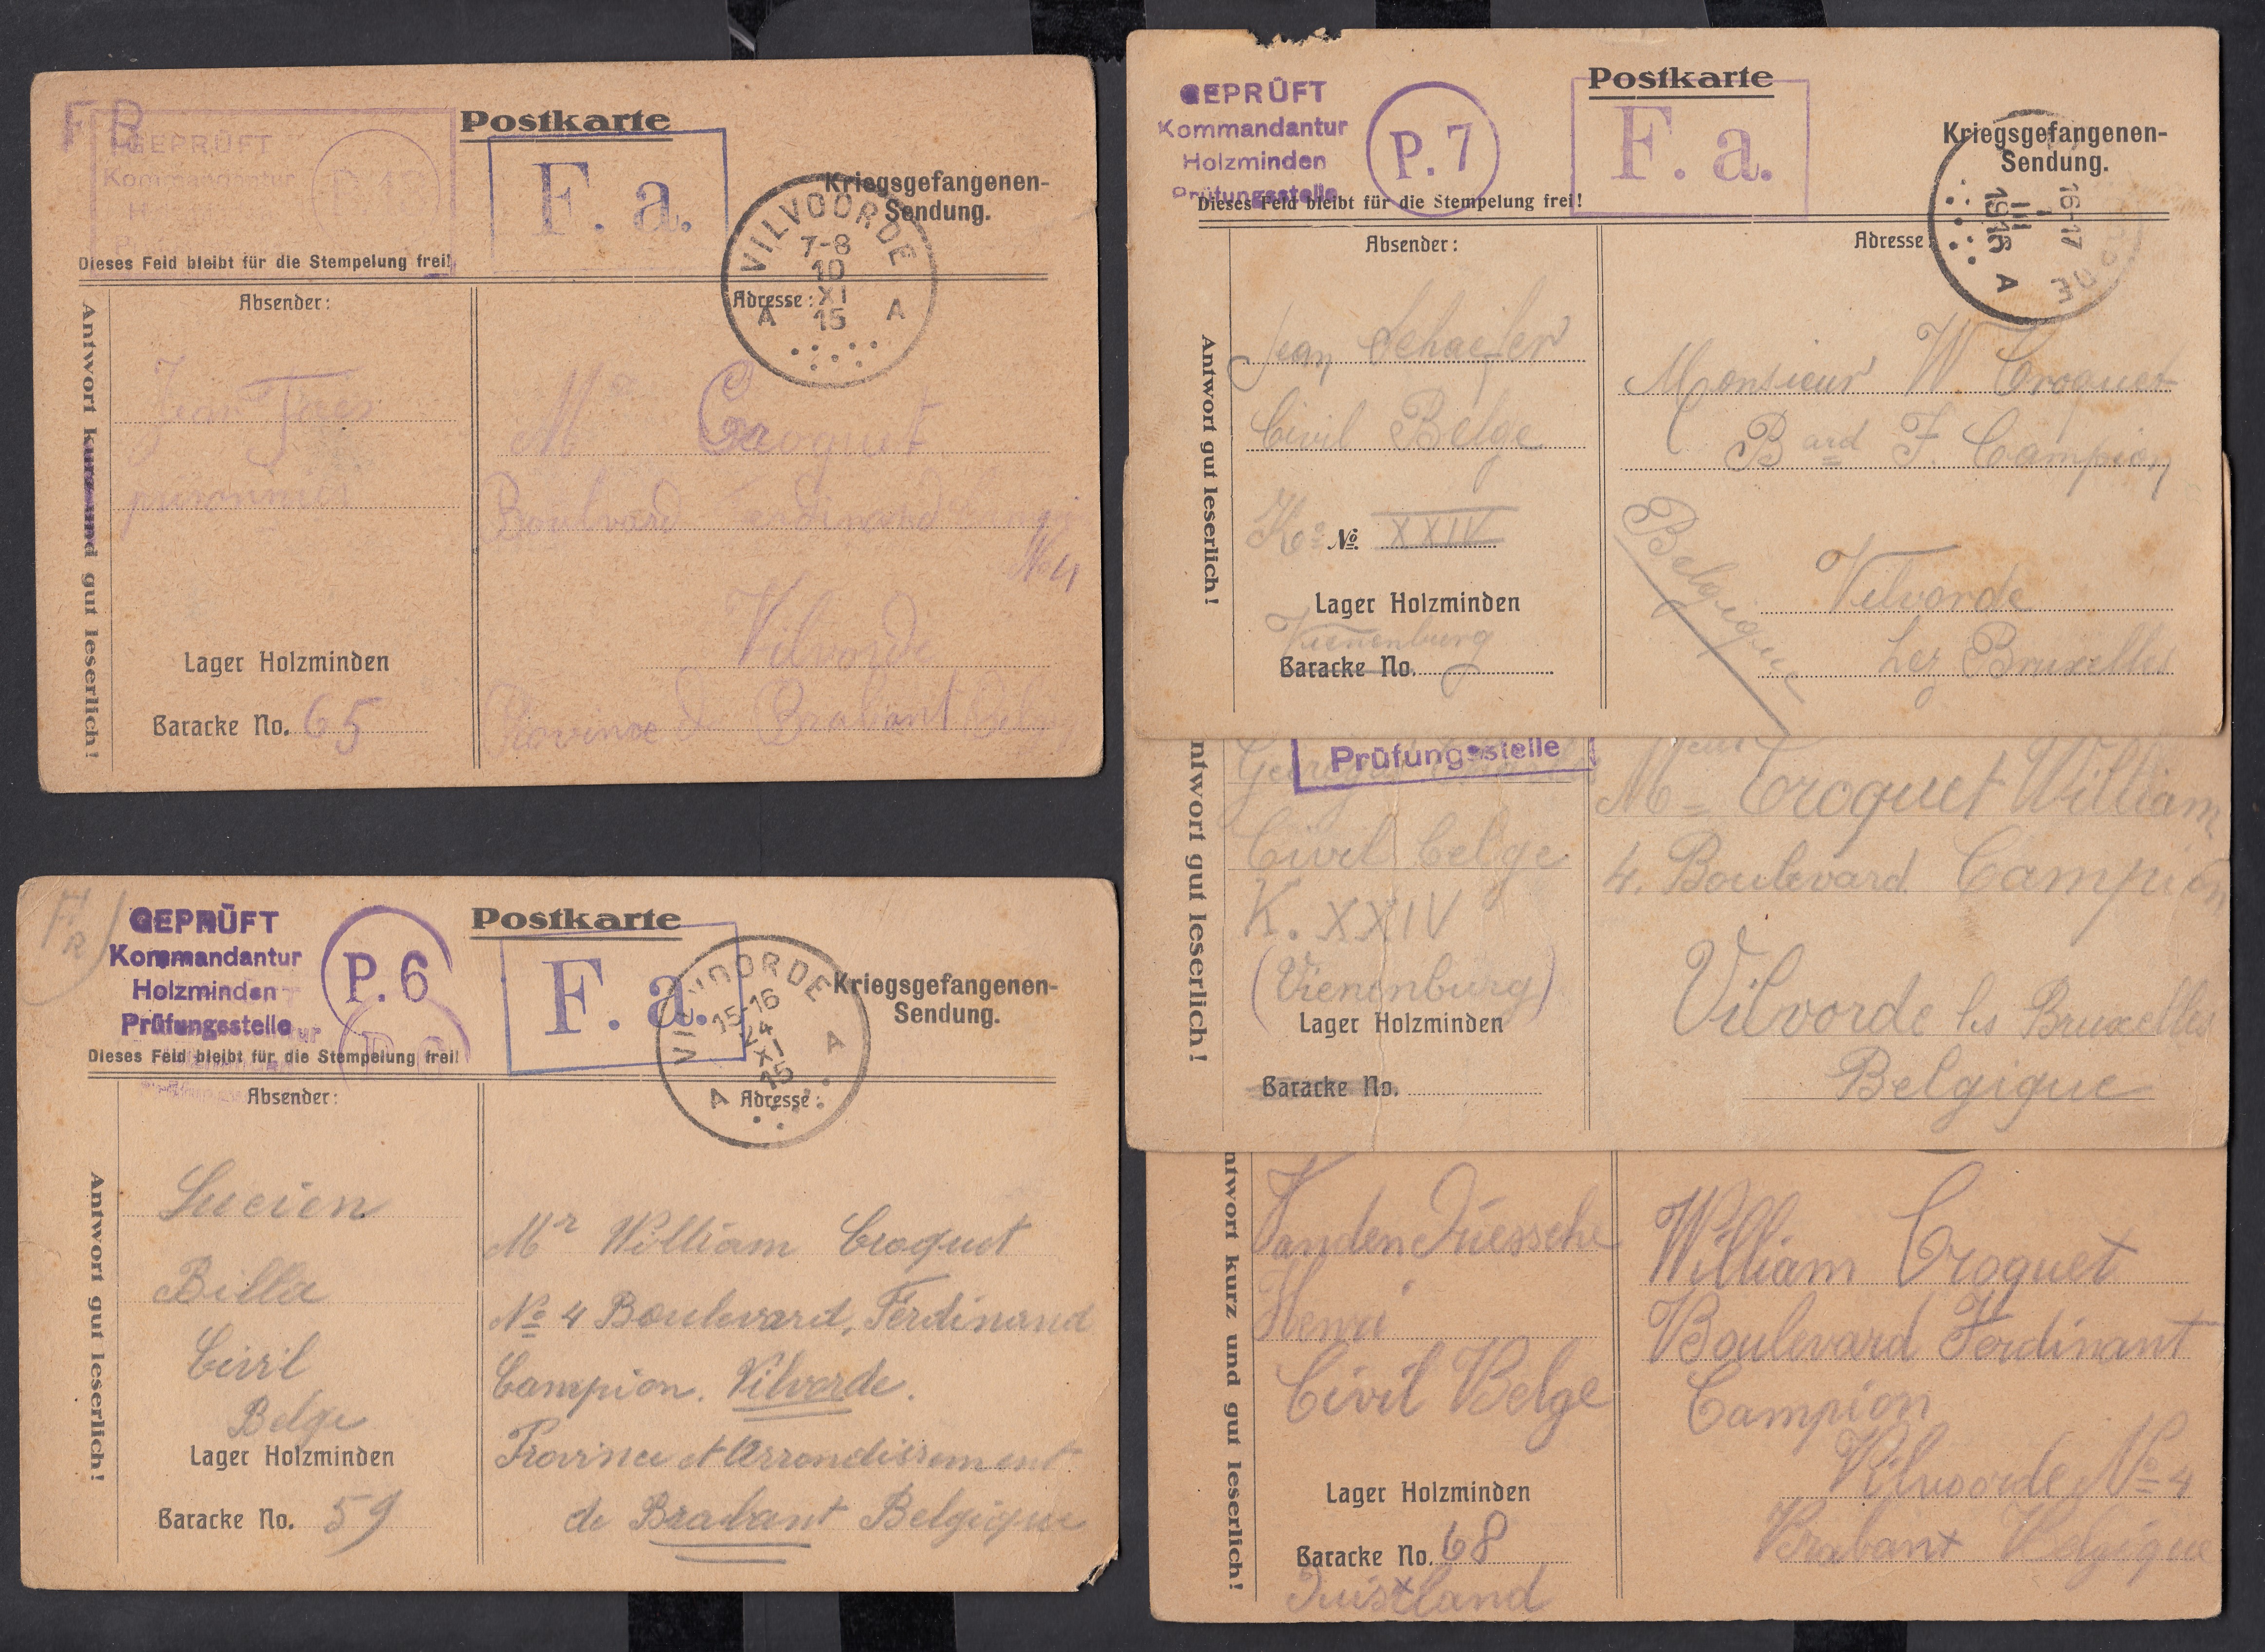 F R
GEPRÜFT
Kommandantur
Postkarte
F. a.
Kriegsgefangenen-
Sendung.
VILVOORDE
7-8
10
XI
15
A A
Dieses Feld bleibt für die Stempelung frei!
Absender:
Adresse:
Antwort kurz und gut leserlich!
Jean Taes
Mr Croquet
Boulvard Ferdinand
No 4
Lager Holzminden
Vilvorde
Baracke No. 65
Province de Brabant
GEPRÜFT
Kommandantur
Holzminden
Prüfungsstelle
P. 7
Postkarte
F. a.
Kriegsgefangenen-
Sendung.
16-17
III
1916
A
DE
Dieses Feld bleibt für die Stempelung frei!
Absender:
Adresse:
Antwort gut leserlich!
Jean Schaefer
Civil Belge
Ko No. XXIV
Lager Holzminden
Vienenburg
Baracke No.
Monsieur W Croquet
Bard F. Campion
Belgique
Vilvorde
lez Bruxelles
Prüfungsstelle
ntwort gut leserlich!
Georges
Civil belge
K. XXIV
(Vienenburg)
Lager Holzminden
Baracke No.
Mr Croquet William
4. Boulevard Campion
Vilvorde les Bruxelles
Belgique
FR
GEPRÜFT
Kommandantur
Holzminden
Prüfungsstelle
P. 6
Postkarte
F. a.
Kriegsgefangenen-
Sendung.
VILVOORDE
15-16
24
XI
15
A A
Dieses Feld bleibt für die Stempelung frei!
Absender:
Adresse:
Antwort gut leserlich!
Lucien
Billa
Civil
Belge
Lager Holzminden
Baracke No. 59
Mr William Croquet
No 4 Boulevard, Ferdinand
Campion. Vilvorde.
Province et Arrondissement
de Brabant Belgique
ntwort kurz und gut leserlich!
Vanden
Henri
Civil Belge
Lager Holzminden
Baracke No. 68
William Croquet
Boulevard Ferdinant
Campion
Vilvoorde No 4
Brabant Belgique